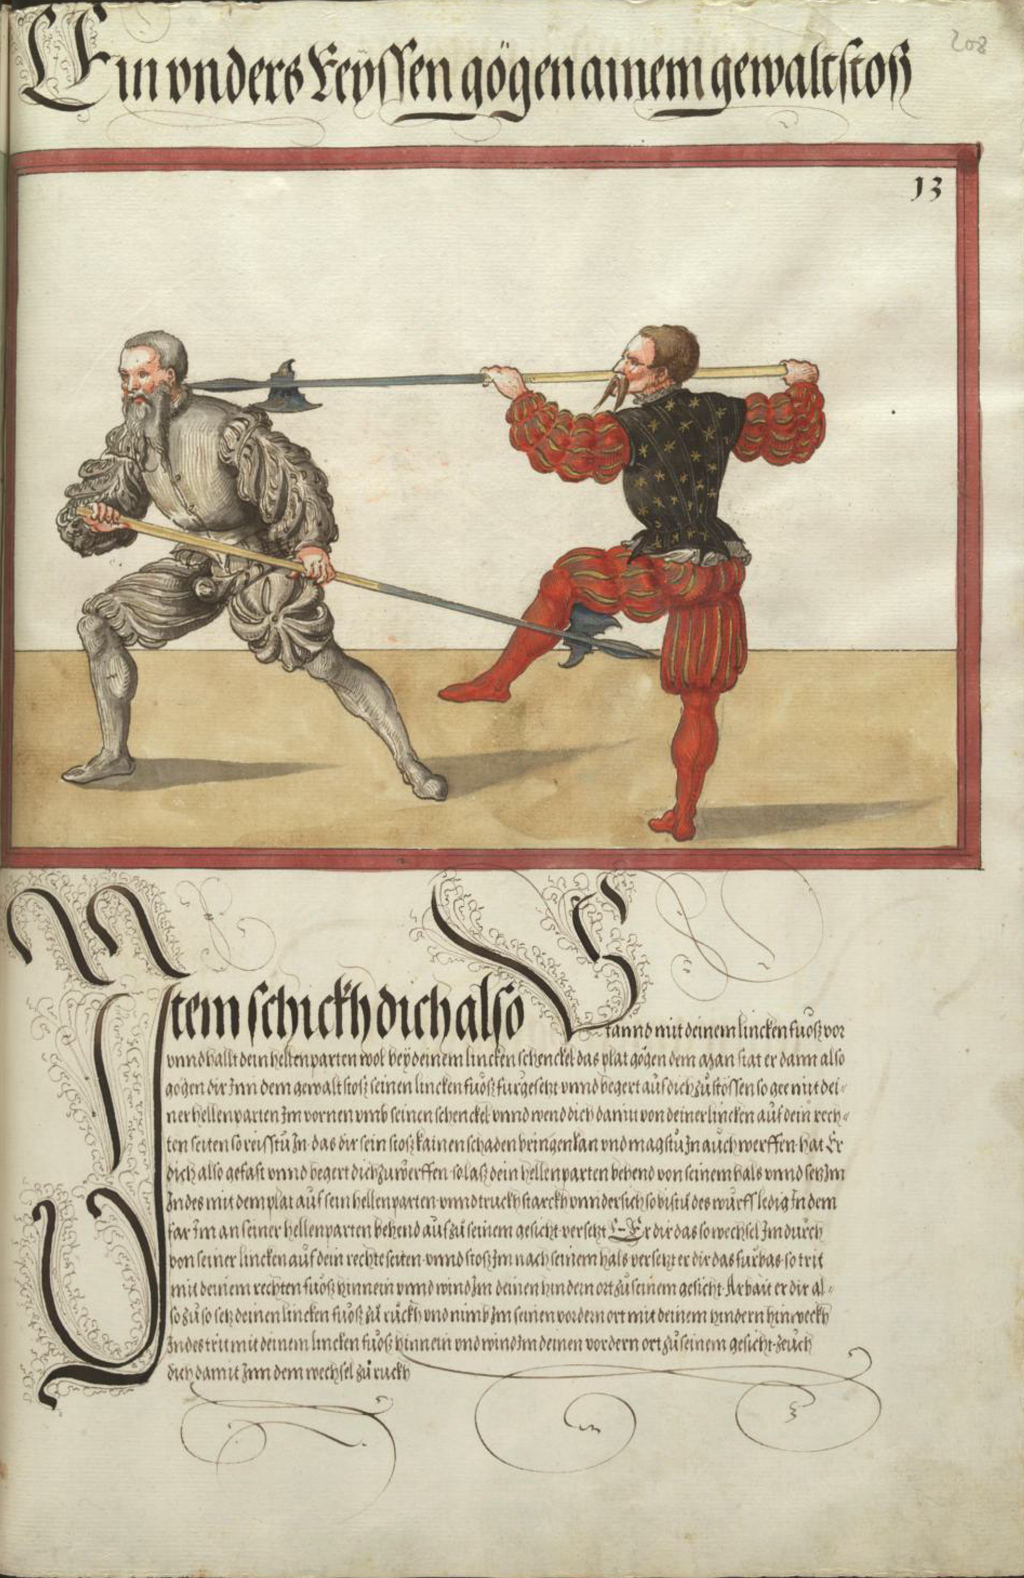 208
Ein vnders Reyssen gögen ainem gewaltstoß
13
Item schickh dich also Stannd mit deinem lincken fuoß vor
vnnd hallt dein hellenparten wol bey deinem lincken schenckel das plat gögen dem man stat er dann also
gögen dir Inn dem gewalt stoß seinen lincken fuoß furgesetzt vnnd begert auf dich zů stossen so gee mit dei-
ner hellenparten Im vornen vmb seinen schenckel vnnd wend dich damit von deiner lincken auf dein rech-
ten seiten so reisstů In das dir sein stoß kainen schaden bringen kan vnd magstů In auch werffen hat Er
dich also gefast vnnd begert dich zů werffen so laß dein hellenparten behend von seinem hals vnnd setz Im
Indes mit dem plat auf sein hellenparten vnnd truckh starckh vnndersich so bistů des wurfs ledig In dem
far Im an seiner hellenparten behend auf zů seinem gesicht versetzt Er dir das so wechsel Im durch
von seiner lincken auf dein rechte seiten vnnd stoß Im nach seinem hals versetzt er dir das furbas so trit
mit deinem rechten fuoß hinnein vnnd wind Im deinen hindern ort zů seinem gesicht Arbait er dir al-
so zů so setz deinen lincken fuoß zů růckh vnd nimb Im seinen vordern ort mit deinem hindern hinweckh
Indes trit mit deinem lincken fuoß hinnein vnd wind Im deinen vordern ort zů seinem gesicht zeuch
dich damit Inn dem wechsel zů ruckh